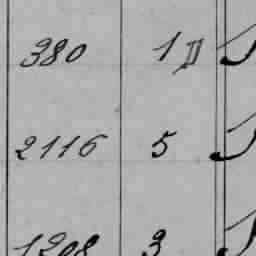 380 1 II
2116 5
1208 3